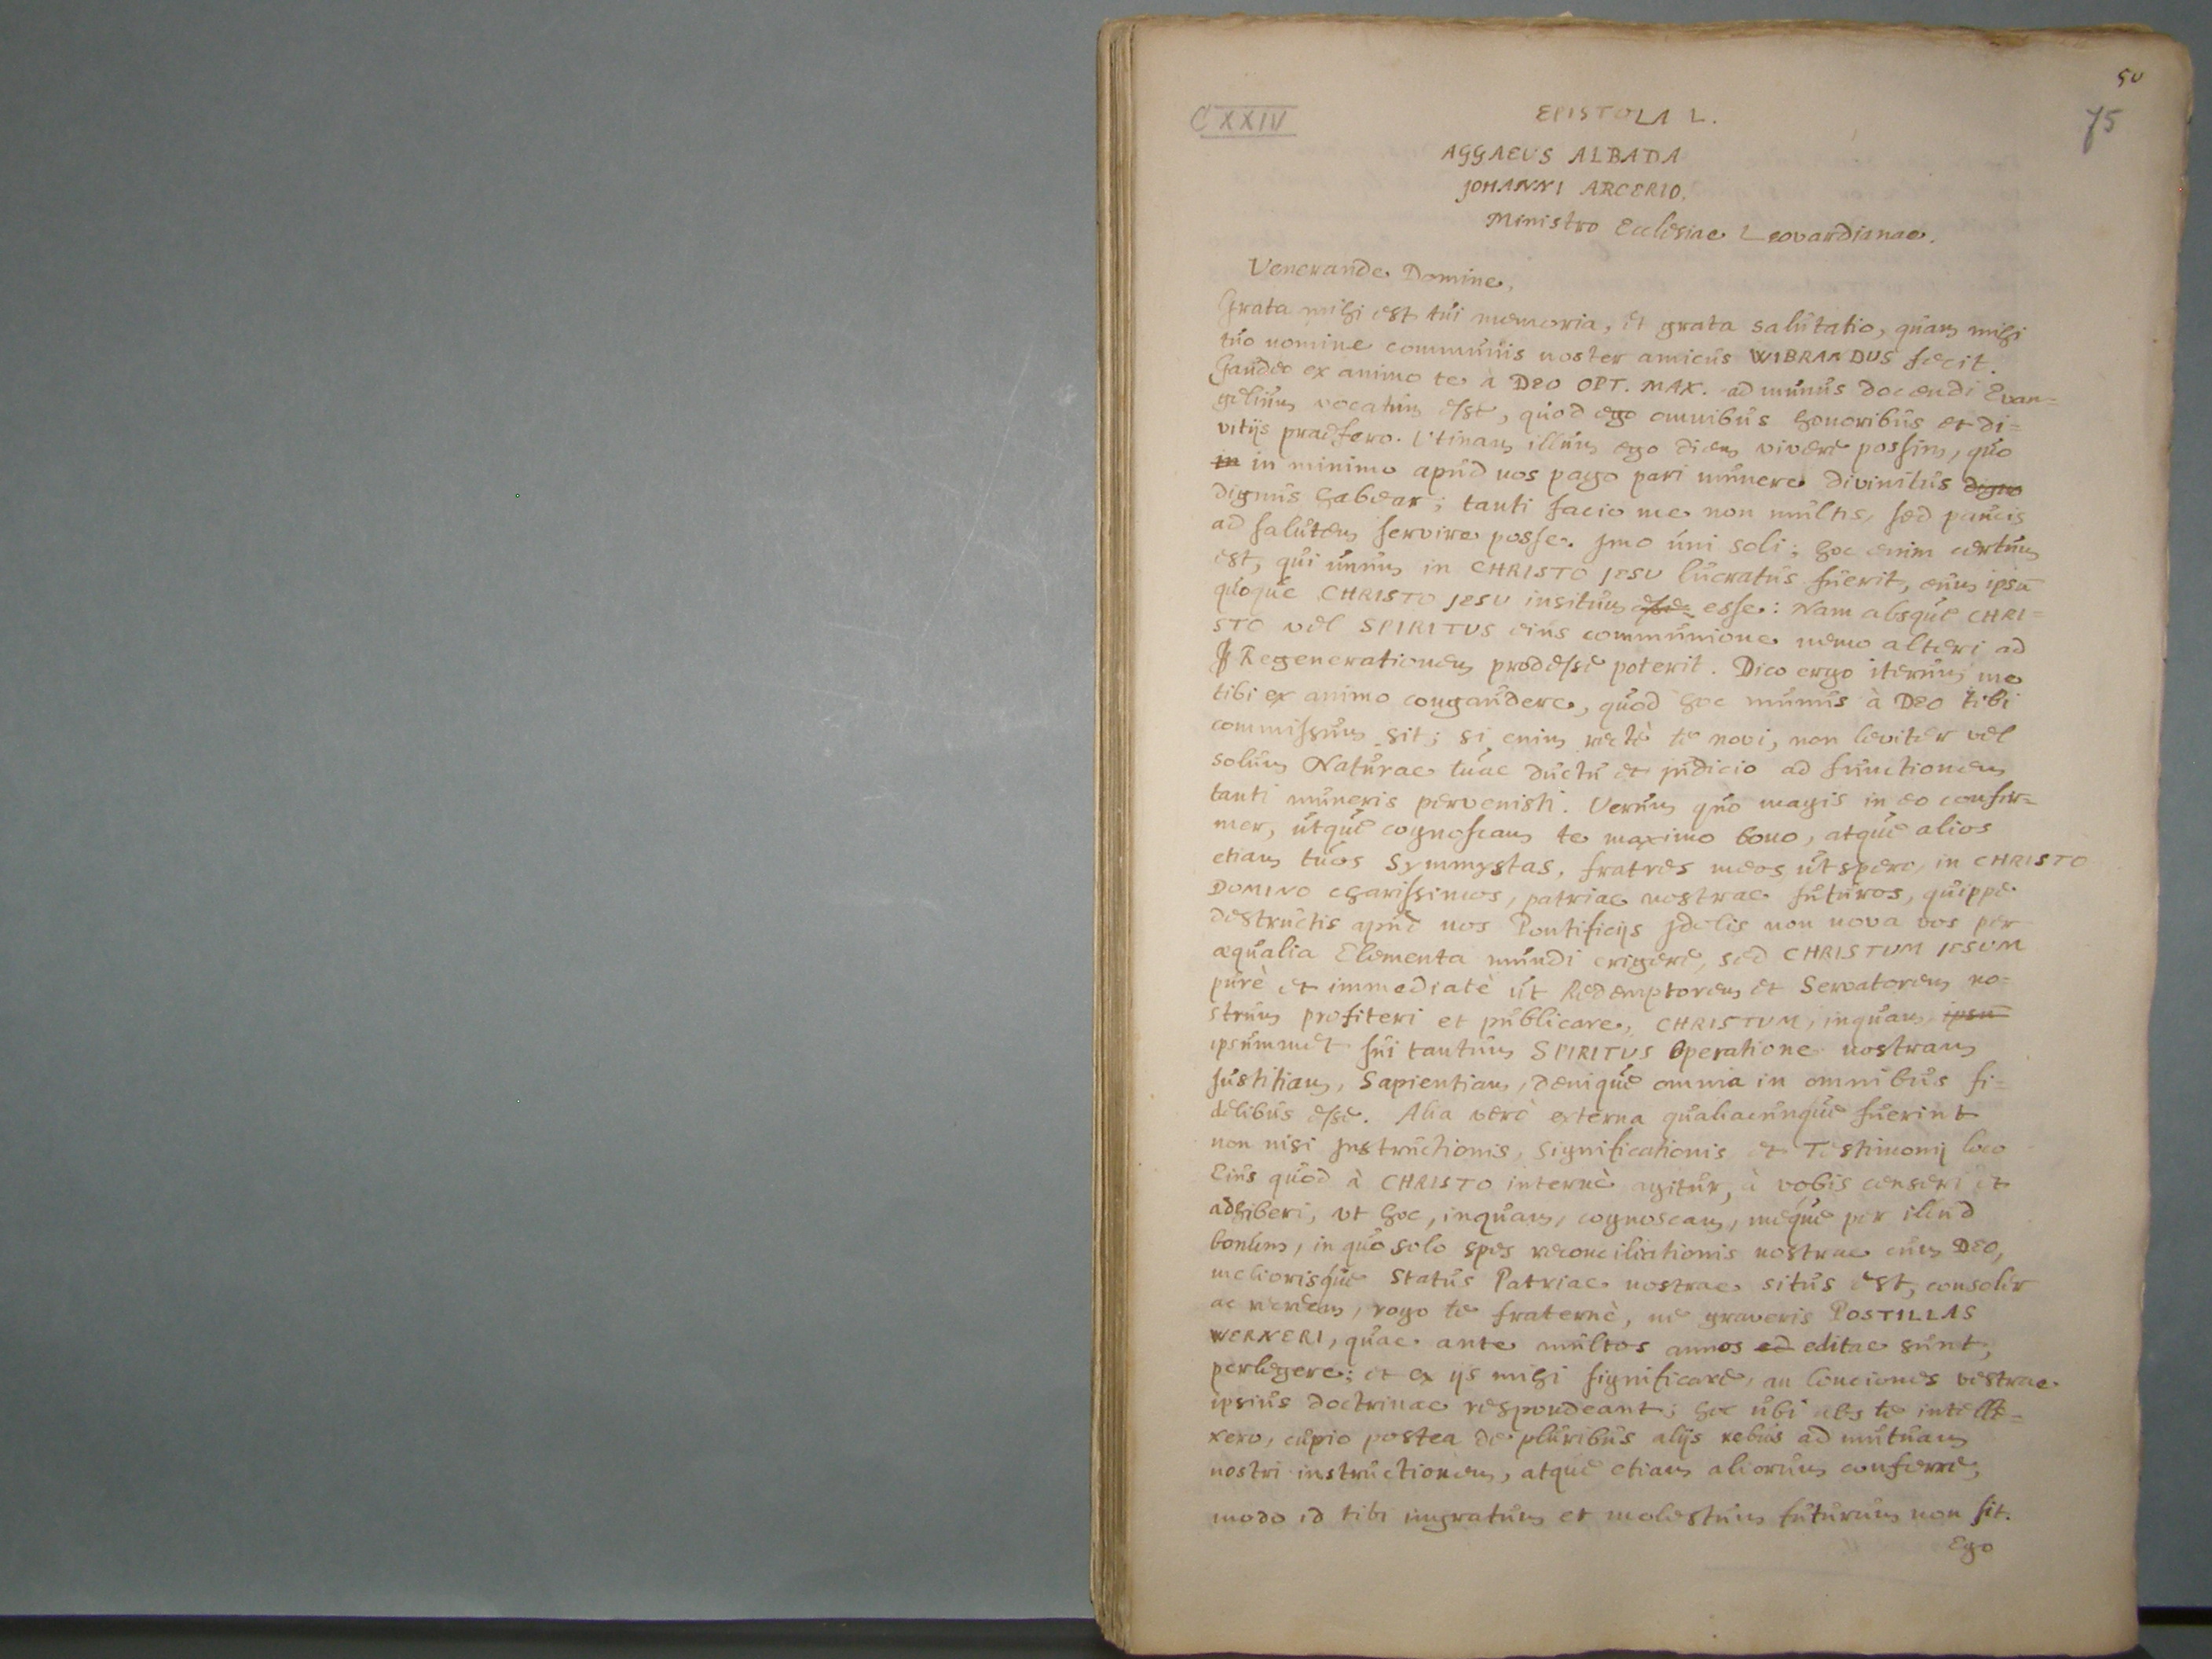 50
CXXIV
75
EPISTOLA L.
AGGAEUS ALBADA
JOHANNI ARCERIO.
Ministro Ecclesiae Leovardianae.
Venerande Domine,
Grata mihi est tui memoria, et grata salutatio, quam mihi
tuo nomine communis noster amicus WIBRANDUS fecit.
Gaudeo ex animo te à DEO OPT. MAX. ad munus docendi Evan=
gelium vocatum esse, quod ego omnibus honoribus et di=
vitijs praefero. Utinam illum ego diem vivere possim, quo
in in minimo apud nos pago pari munere divinitus digno
dignus habear; tanti facio me non multis, sed paucis
ad salutem servire posse. Jmo uni soli; hoc enim certum
est, qui unum in CHRISTO JESU lucratus fuerit, eum ipsū
quoque CHRISTO JESU insitum esse esse: Nam absque CHRI=
STO vel SPIRITUS eius communione nemo alteri ad
Regenerationem prodesse poterit. Dico ergo iterum me
tibi ex animo congaudere, quod hoc munus à DEO tibi
commissum sit; si enim rectè te novi, non leviter vel
solum Naturae tuae ductu et judicio ad functionem
tanti muneris pervenisti. Verum quo magis in eo confir=
mer, utque cognoscam te maximo bono, atque alios
etiam tuos Symmystas, fratres meos ut spero, in CHRISTO
DOMINO charissimos, patriae nostrae futuros, quippe
destructis apud nos Pontificijs Jdolis non nova vos per
aequalia Elementa mundi erigere, sed CHRISTUM JESUM
purè et immediatè ut Redemptorem et Servatorem no=
strum profiteri et publicare, CHRISTUM, inquam, ipsū
ipsummet sui tantum SPIRITUS Operatione nostram
Justitiam, Sapientiam, denique omnia in omnibus fi=
delibus esse. Alia verò externa qualiacunque fuerint
non nisi Jnstructionis, Significationis et Testimonij loco
Eius quod à CHRISTO internè agitur, à vobis censeri et
adhiberi, ut hoc, inquam, cognoscam, meque per illud
bonum, in quo solo spes reconciliationis nostrae cum DEO,
meliorisque Status Patriae nostrae situs est, consoler
ac rogo te fraternè, ne graveris POSTILLAS
WERNERI, quae ante multos annos ed editae sunt,
perlegere; et ex ijs mihi significare, an Conciones vestrae
ipsius doctrinae respondeant; hoc ubi abs te intelle=
xero, cupio postea de pluribus alijs rebus ad mutuam
nostri instructionem, atque etiam aliorum conferre,
modo id tibi ingratum et molestum futurum non sit.
Ego